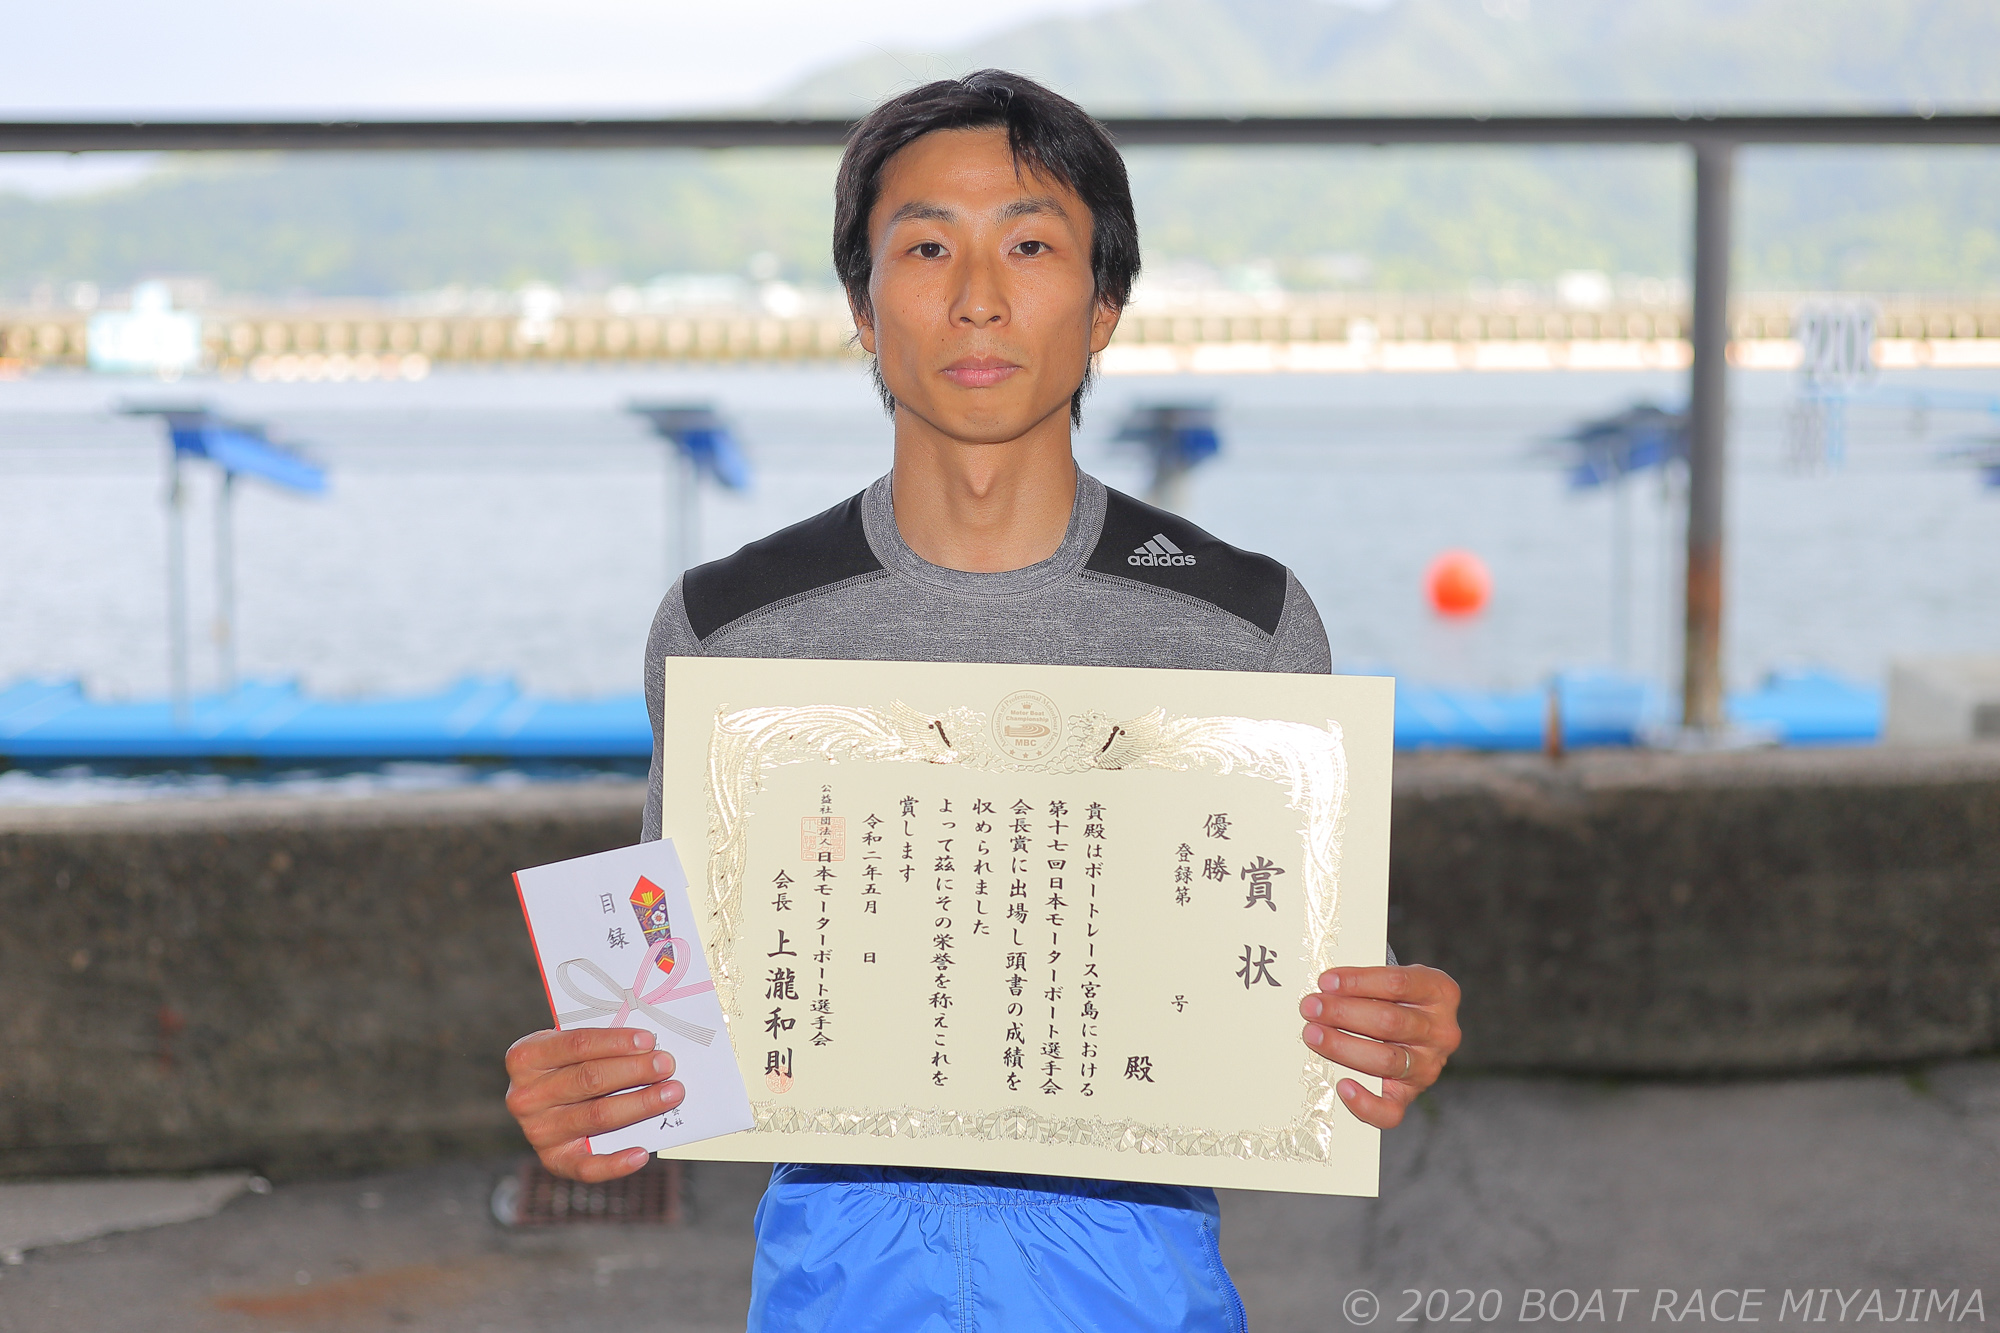 賞状
優勝
登録第 号
殿
貴殿はボートレース宮島における
第十七回日本モーターボート選手会
会長賞に出場し頭書の成績を
収められました
よって茲にその栄誉を称えこれを
賞します
令和二年五月 日
公益社団法人日本モーターボート選手会
会長 上瀧和則
Motor Boat
Championship
MBC
目録
adidas
© 2020 BOAT RACE MIYAJIMA